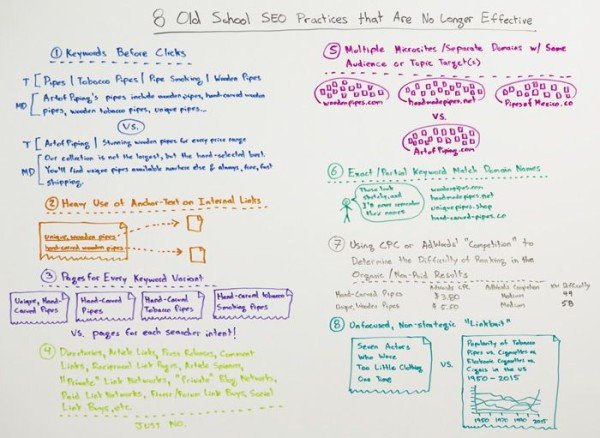 8 Old School SEO Practices that Are No Longer Effective
① Keywords Before Clicks
T [ Pipes | Tobacco Pipes | Pipe Smoking | Wooden Pipes
MD [ Art of Piping's pipes include wooden pipes, hand-carved wooden
pipes, wooden tobacco pipes, unique pipes...
VS.
T [ Art of Piping | Stunning wooden pipes for every price range
MD [ Our collection is not the largest, but the hand-selected best.
You'll find unique pipes available nowhere else & always, free, fast
shipping.
② Heavy Use of Anchor-Text on Internal Links
unique, wooden pipes
hand-carved wooden pipes
③ Pages for Every Keyword Variant
Unique, Hand-
Carved Pipes
Hand-Carved
Pipes
Hand-Carved
Tobacco Pipes
Hand-Carved Tobacco
Smoking Pipes
VS. pages for each searcher intent!
④ Directories, Article Links, Press Releases, Comment
Links, Reciprocal Link Pages, Article Spinners,
"Private" Link Networks, "Private" Blog Networks,
Paid Link Networks, Fiverr/Forum Link Buys, Social
Link Buys, etc.
JUST NO.
⑤ Multiple Microsites/Separate Domains w/ Same
Audience or Topic Target(s)
woodenpipes.com
handmadepipes.net
PipesofMexico.co
VS.
ArtofPiping.com
⑥ Exact/Partial Keyword Match Domain Names
These look
sketchy, and
I'll never remember
their names
woodenpipes.com
handmadepipes.net
uniquepipes.shop
hand-carved-pipes.co
⑦ Using CPC or AdWords' "Competition" to
Determine the Difficulty of Ranking in the
Organic/Non-Paid Results
AdWords CPC AdWords Competition KW Difficulty
Hand-Carved Pipes $3.80 Medium 49
Unique, Wooden Pipes $5.50 Medium 58
⑧ Unfocused, Non-strategic "Linkbait"
Seven Actors
Who Wore
Too Little Clothing
One Time
VS.
Popularity of Tobacco
Pipes vs. Cigarettes vs.
Electronic Cigarettes vs.
Cigars in the US
1950 - 2015
1950 1970 1990 2015